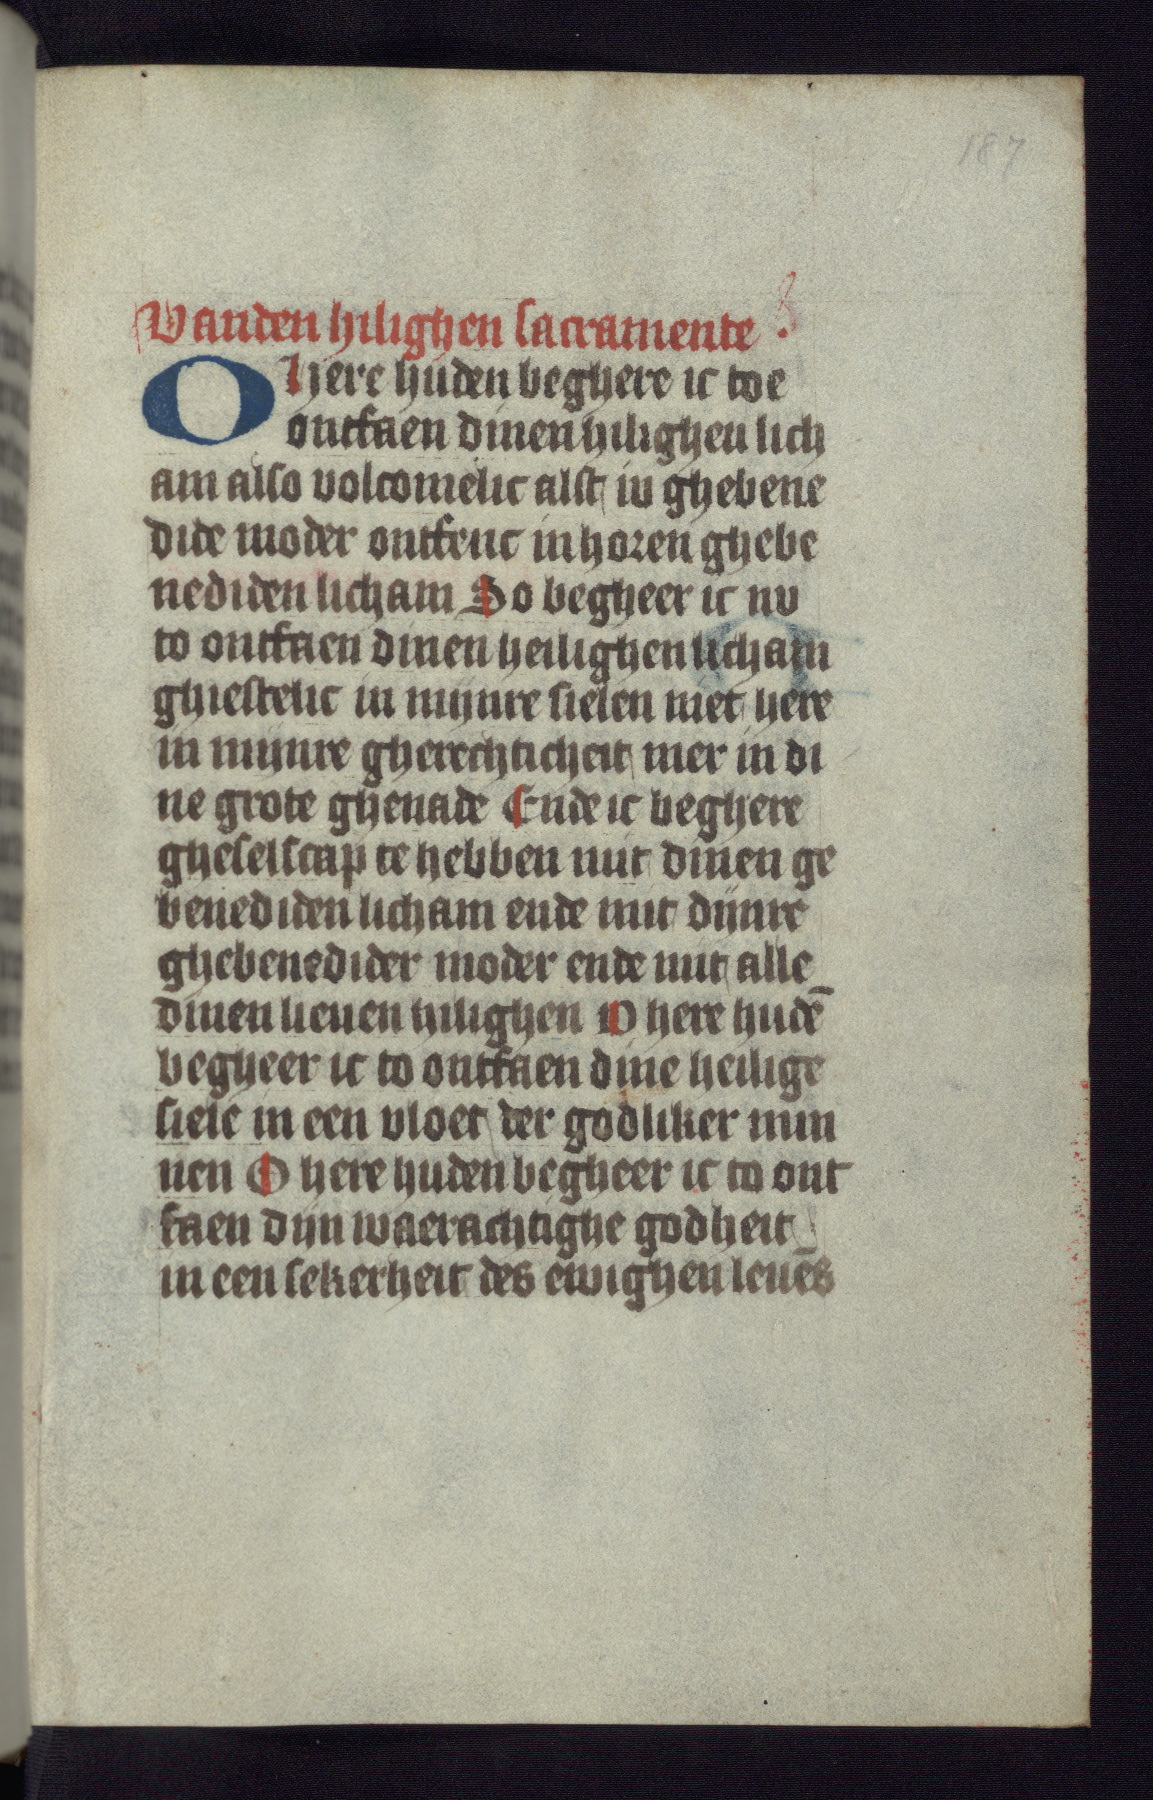 187
Vanden hilighen sacramente
O here huden beghere ic toe
ontfaen dinen hilighen lich
am also volcomelic alst iv ghebene
dide moder ontfenc in horen ghebe
nediden licham So begheer ic nv
to ontfaen dinen heilighen licham
ghiestelic in mijnre sielen niet here
in mijnre gherechticheit mer in di
ne grote ghenade Ende ic beghere
gheselscap te hebben mit dinen ge
benediden licham ende mit dijnre
ghebenedider moder ende mit alle
dinen lieuen hilighen O here hudē
begheer ic to ontfaen dine heilige
siele in een vloet der godliker min
nen O here huden begheer ic to ont
faen dijn waerachtighe godheit
in een sekerheit des ewighen leuēs